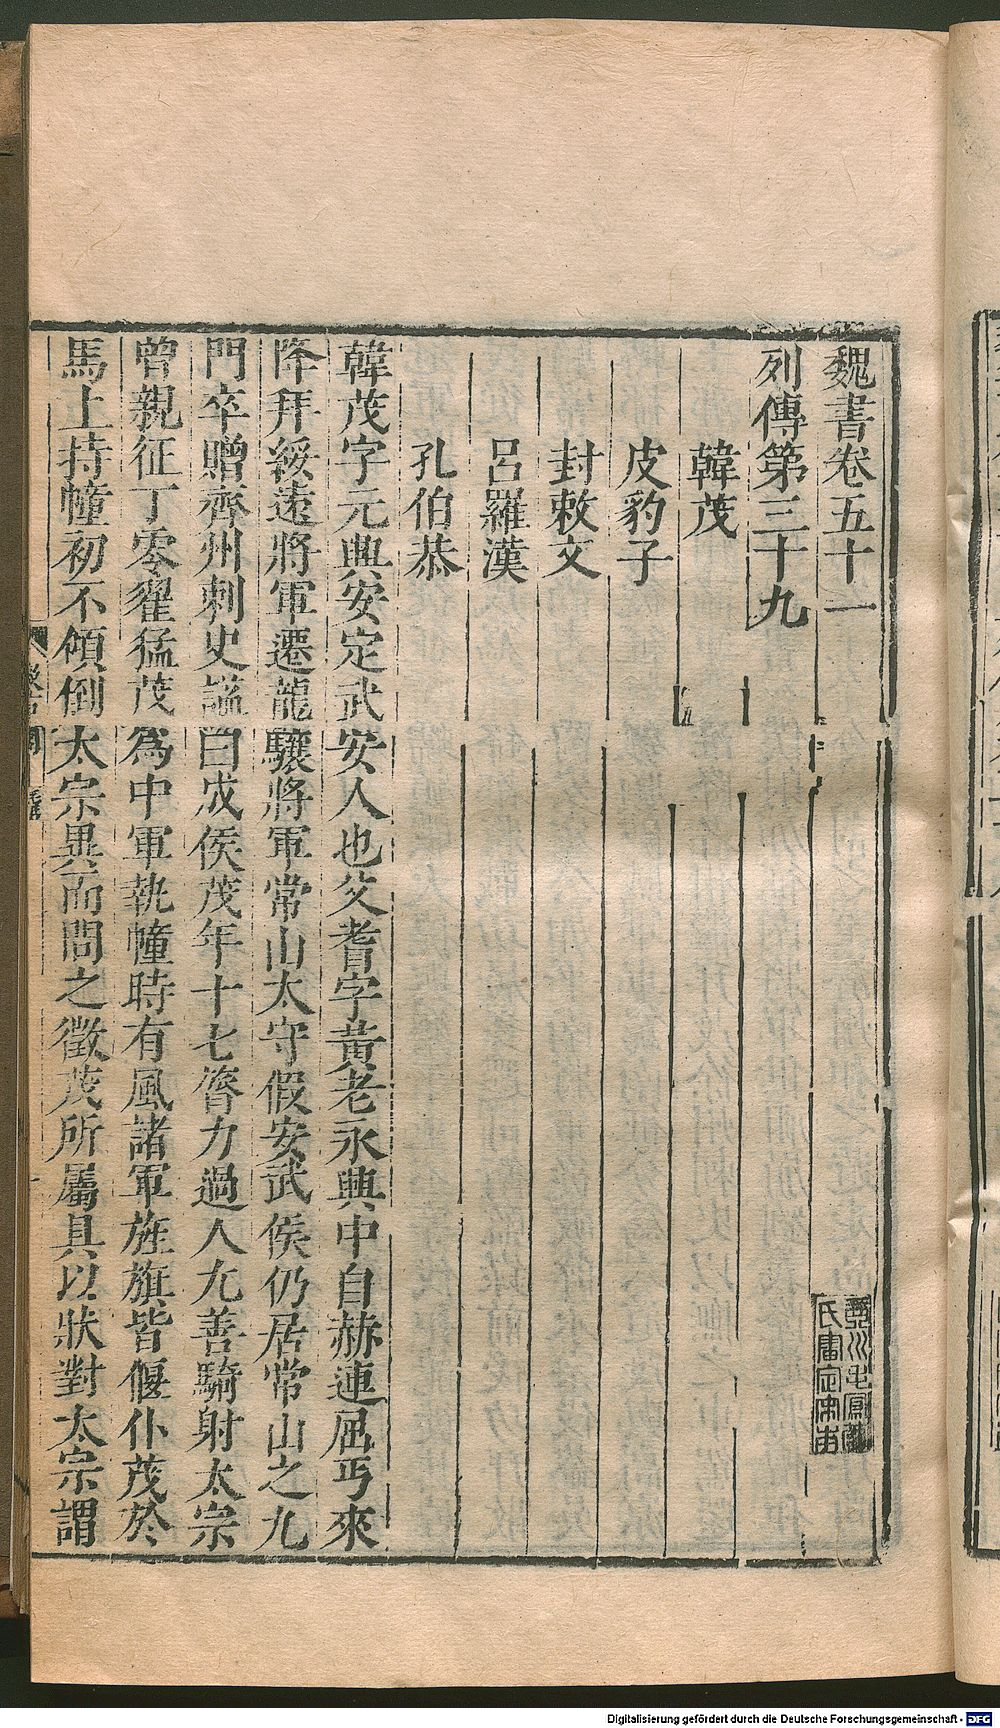 魏書卷五十一
列傳第三十九
韓茂
皮豹子
封敕文
呂羅漢
孔伯恭
韓茂字元興安定武安人也父耆字黃老永興中自赫連屈丐來
降拜綏遠將軍遷龍驤將軍常山太守假安武侯仍居常山之九
門卒贈齊州刺史諡曰成侯茂年十七膂力過人尤善騎射太宗
曾親征丁零翟猛茂爲中軍執幢時有風諸軍旌旗皆偃仆茂於
馬上持幢初不傾倒太宗異而問之徵茂所屬具以狀對太宗謂
毛氏
Digitalisierung gefördert durch die Deutsche Forschungsgemeinschaft - DFG